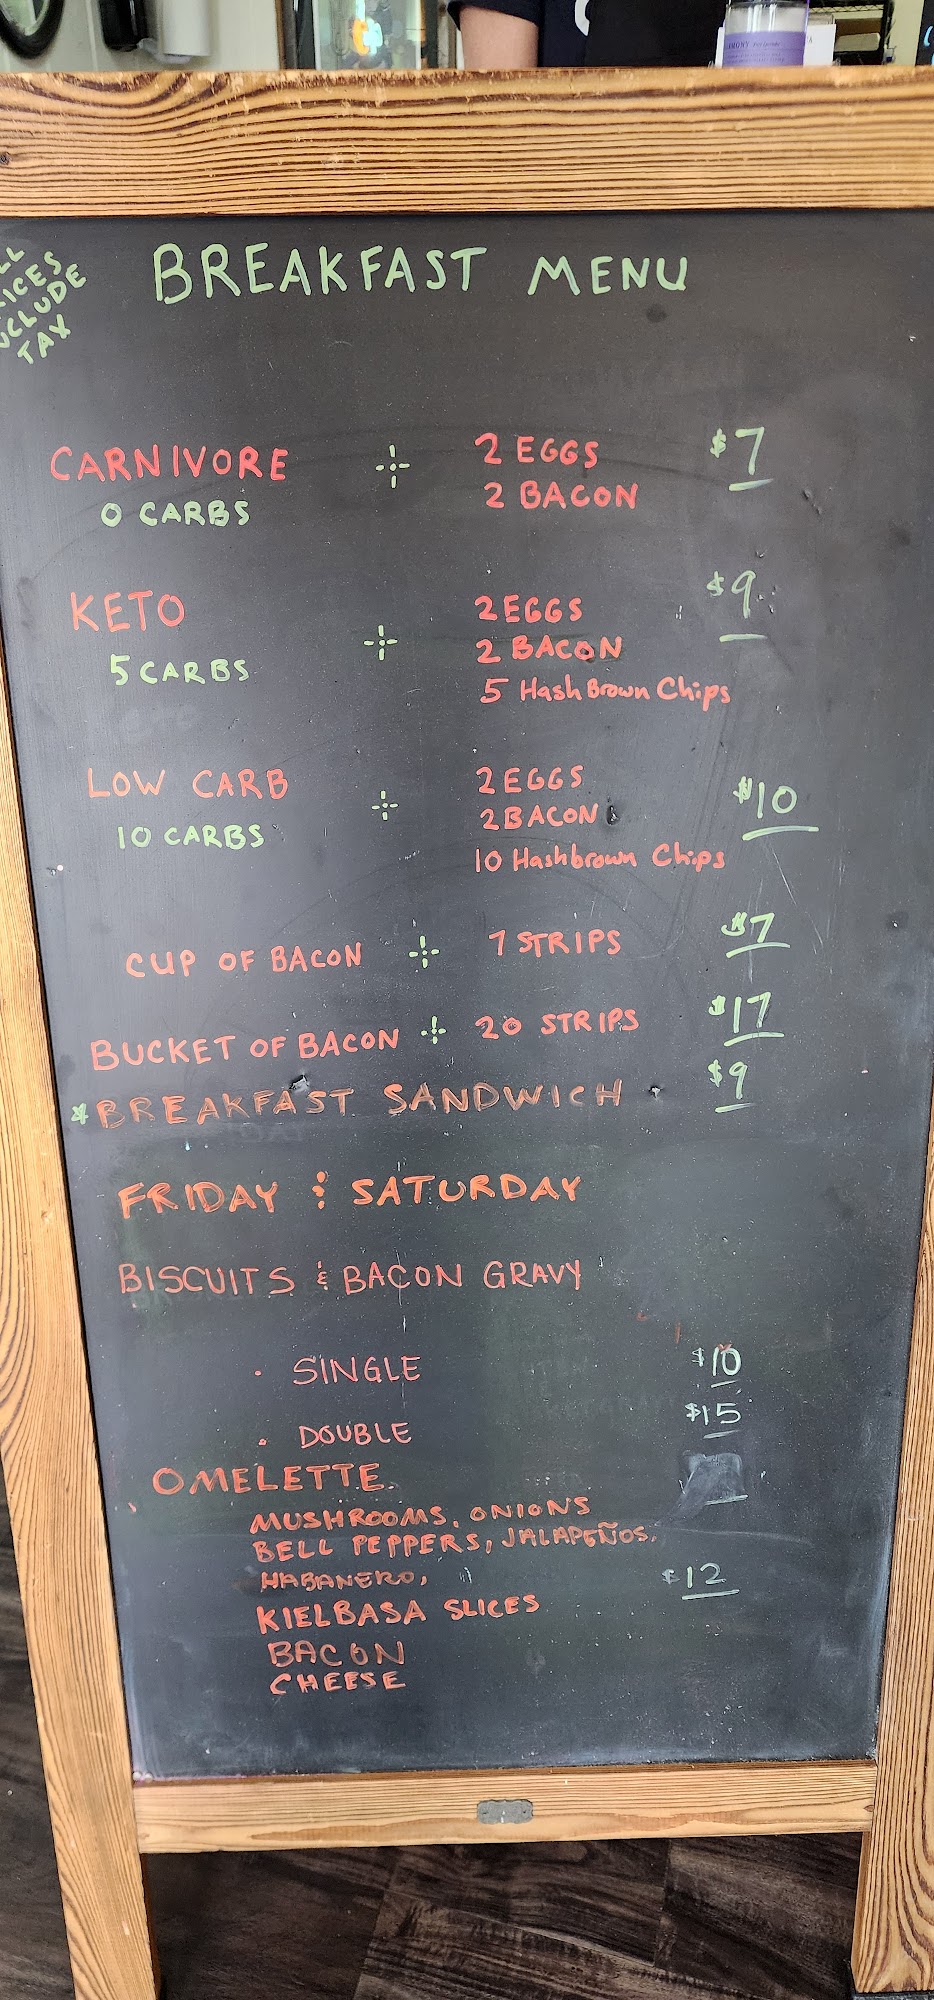 BREAKFAST MENU
TAX
CARNIVORE 2 EGGS $7
0 CARBS 2 BACON
KETO 2 EGGS $9
5 CARBS 2 BACON
5 Hash Brown Chips
LOW CARB 2 EGGS $10
10 CARBS 2 BACON
10 Hashbrown Chips
CUP OF BACON 7 STRIPS $7
BUCKET OF BACON 20 STRIPS $17
*BREAKFAST SANDWICH $9
FRIDAY & SATURDAY
BISCUITS & BACON GRAVY
• SINGLE $10
• DOUBLE $15
OMELETTE
MUSHROOMS, ONIONS
BELL PEPPERS, JALAPEÑOS,
HABANERO, $12
KIELBASA SLICES
BACON
CHEESE